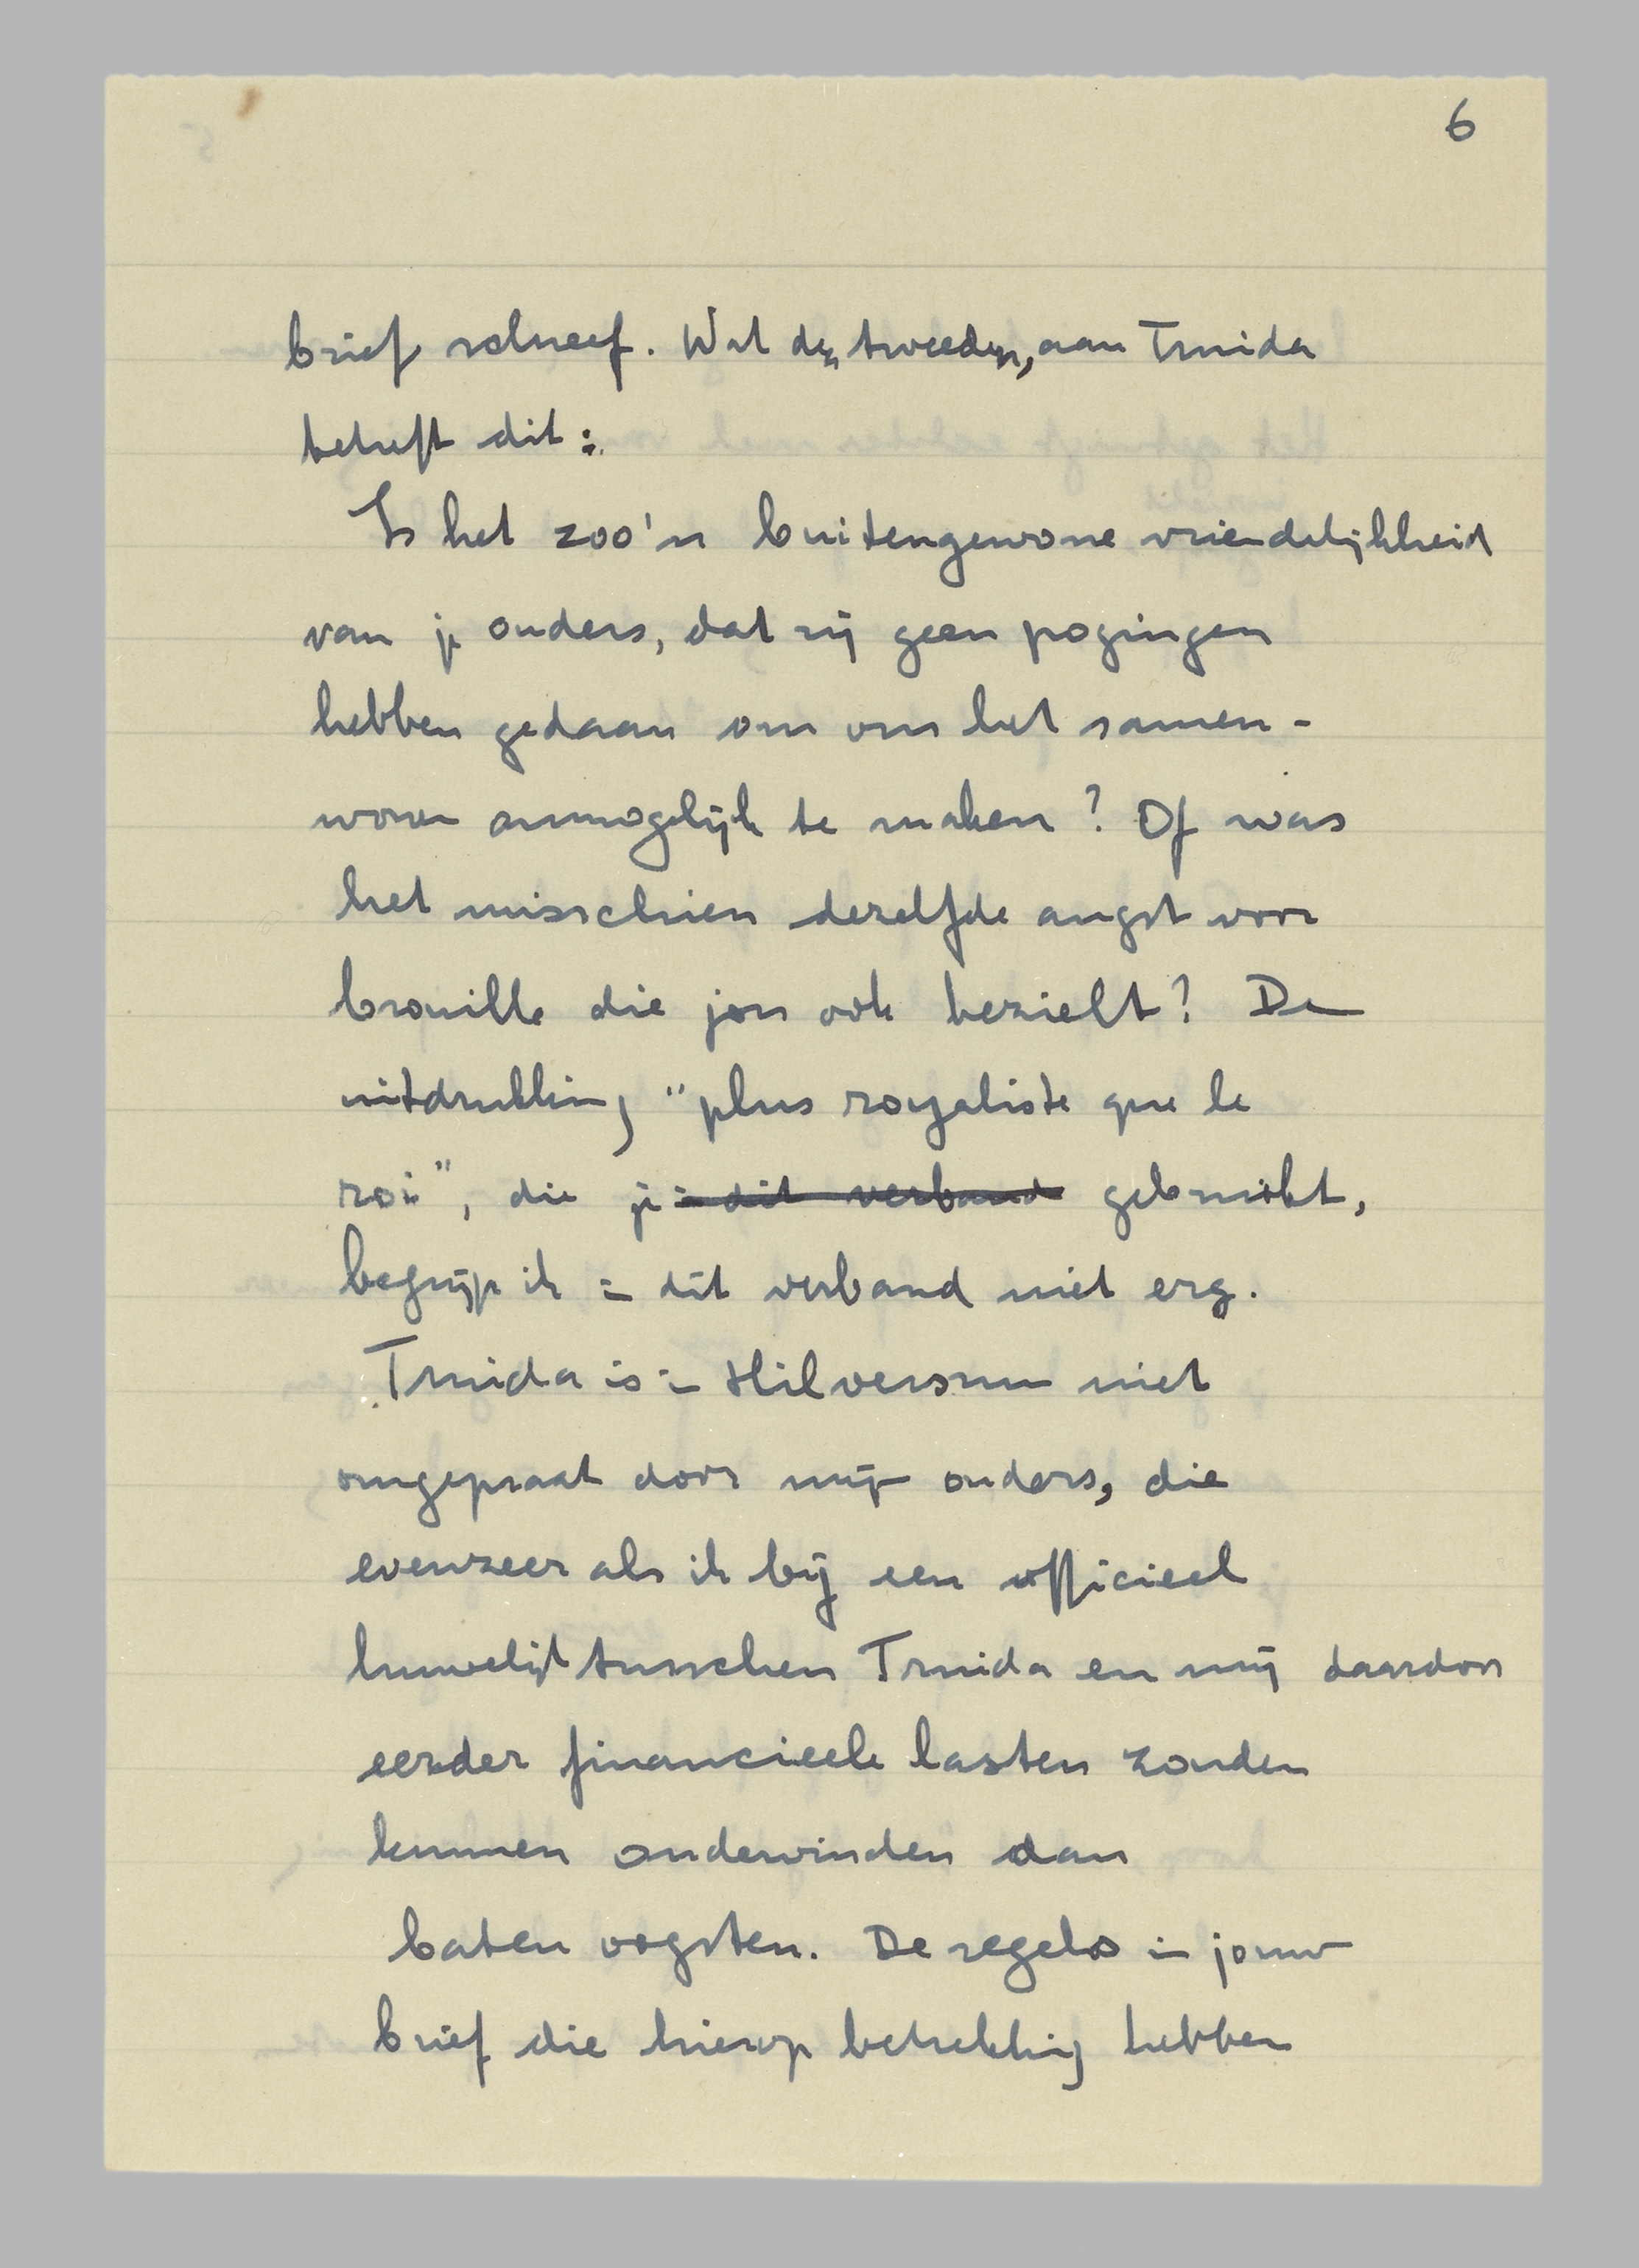 6
brief schreef. Wat den tweeden, aan Truida
betreft dit:
Is het zoo'n buitengewone vriendelijkheid
van je ouders, dat zij geen pogingen
hebben gedaan om ons het samen-
wonen onmogelijk te maken? Of was
het misschien dezelfde angst voor
brouille die jou ook bezielt? De
uitdrukking "plus royaliste que le
roi", die je in dit verband gebruikt,
begrijp ik in dit verband niet erg.
Truida is in Hilversum niet
omgepraat door mijn ouders, die
evenzeer als ik bij een officieel
huwelijk tusschen Truida en mij daardoor
eerder financieele lasten zouden
kunnen ondervinden dan
baten oogsten. De regels in jouw
brief die hierop betrekking hebben